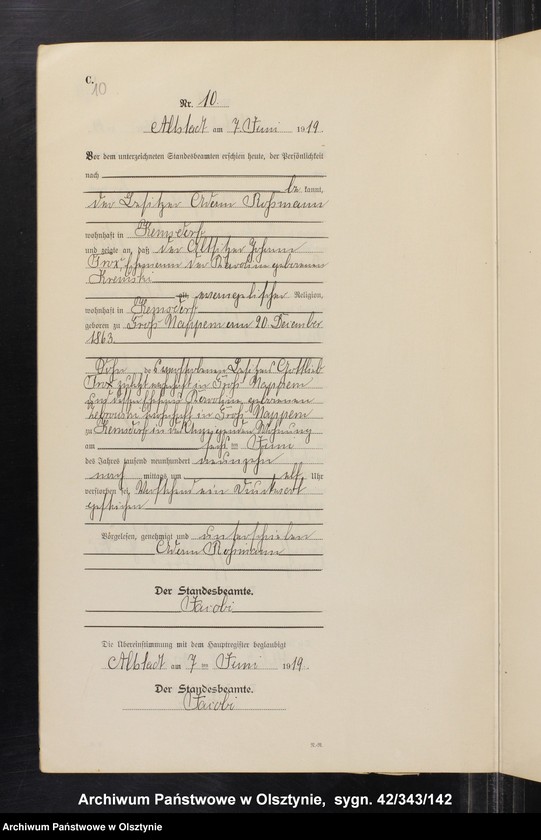 C.
10
Nr. 10.
Altstadt am 7. Juni 1919.
Vor dem unterzeichneten Standesbeamten erschien heute, der Persönlichkeit
nach
be kannt,
der Besitzer Adam Roßmann
wohnhaft in Kemsdorf
und zeigte an, daß der Altsitzer Johann
Ehemann der Karoline geborenen
evangelischer Religion,
wohnhaft in Kemsdorf
geboren zu Groß Nappern am 20. Dezember
1863.
Sohn des verstorbenen Besitzers Gottlieb
zuletzt wohnhaft in Groß Nappern
und dessen Ehefrau Karoline geborenen
wohnhaft in Groß Nappern
zu Kemsdorf in der Wohnung
am Juni
des Jahres tausend neunhundert neunzehn
nach mittags um elf Uhr
verstorben sei. Vorstehend ein Druckwort
gestrichen
Vorgelesen, genehmigt und unterschrieben
Adam Roßmann
Der Standesbeamte.
Jacobi
Die Übereinstimmung mit dem Hauptregister beglaubigt
Altstadt am 7 ten Juni 1919.
Der Standesbeamte.
Jacobi
Archiwum Państwowe w Olsztynie, sygn. 42/343/142
Archiwum Państwowe w Olsztynie